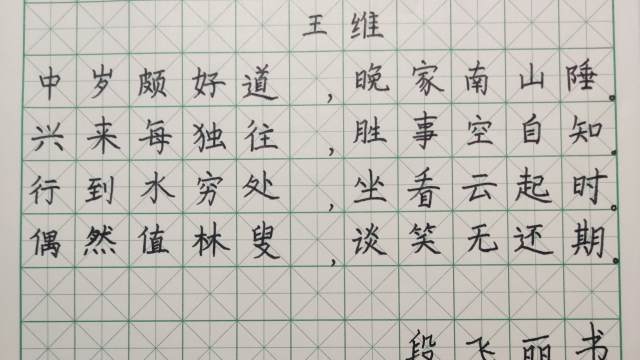 王维
中岁颇好道，晚家南山陲。
兴来每独往，胜事空自知．
行到水穷处，坐看云起时。
偶然值林叟，谈笑无还期。
段飞丽书